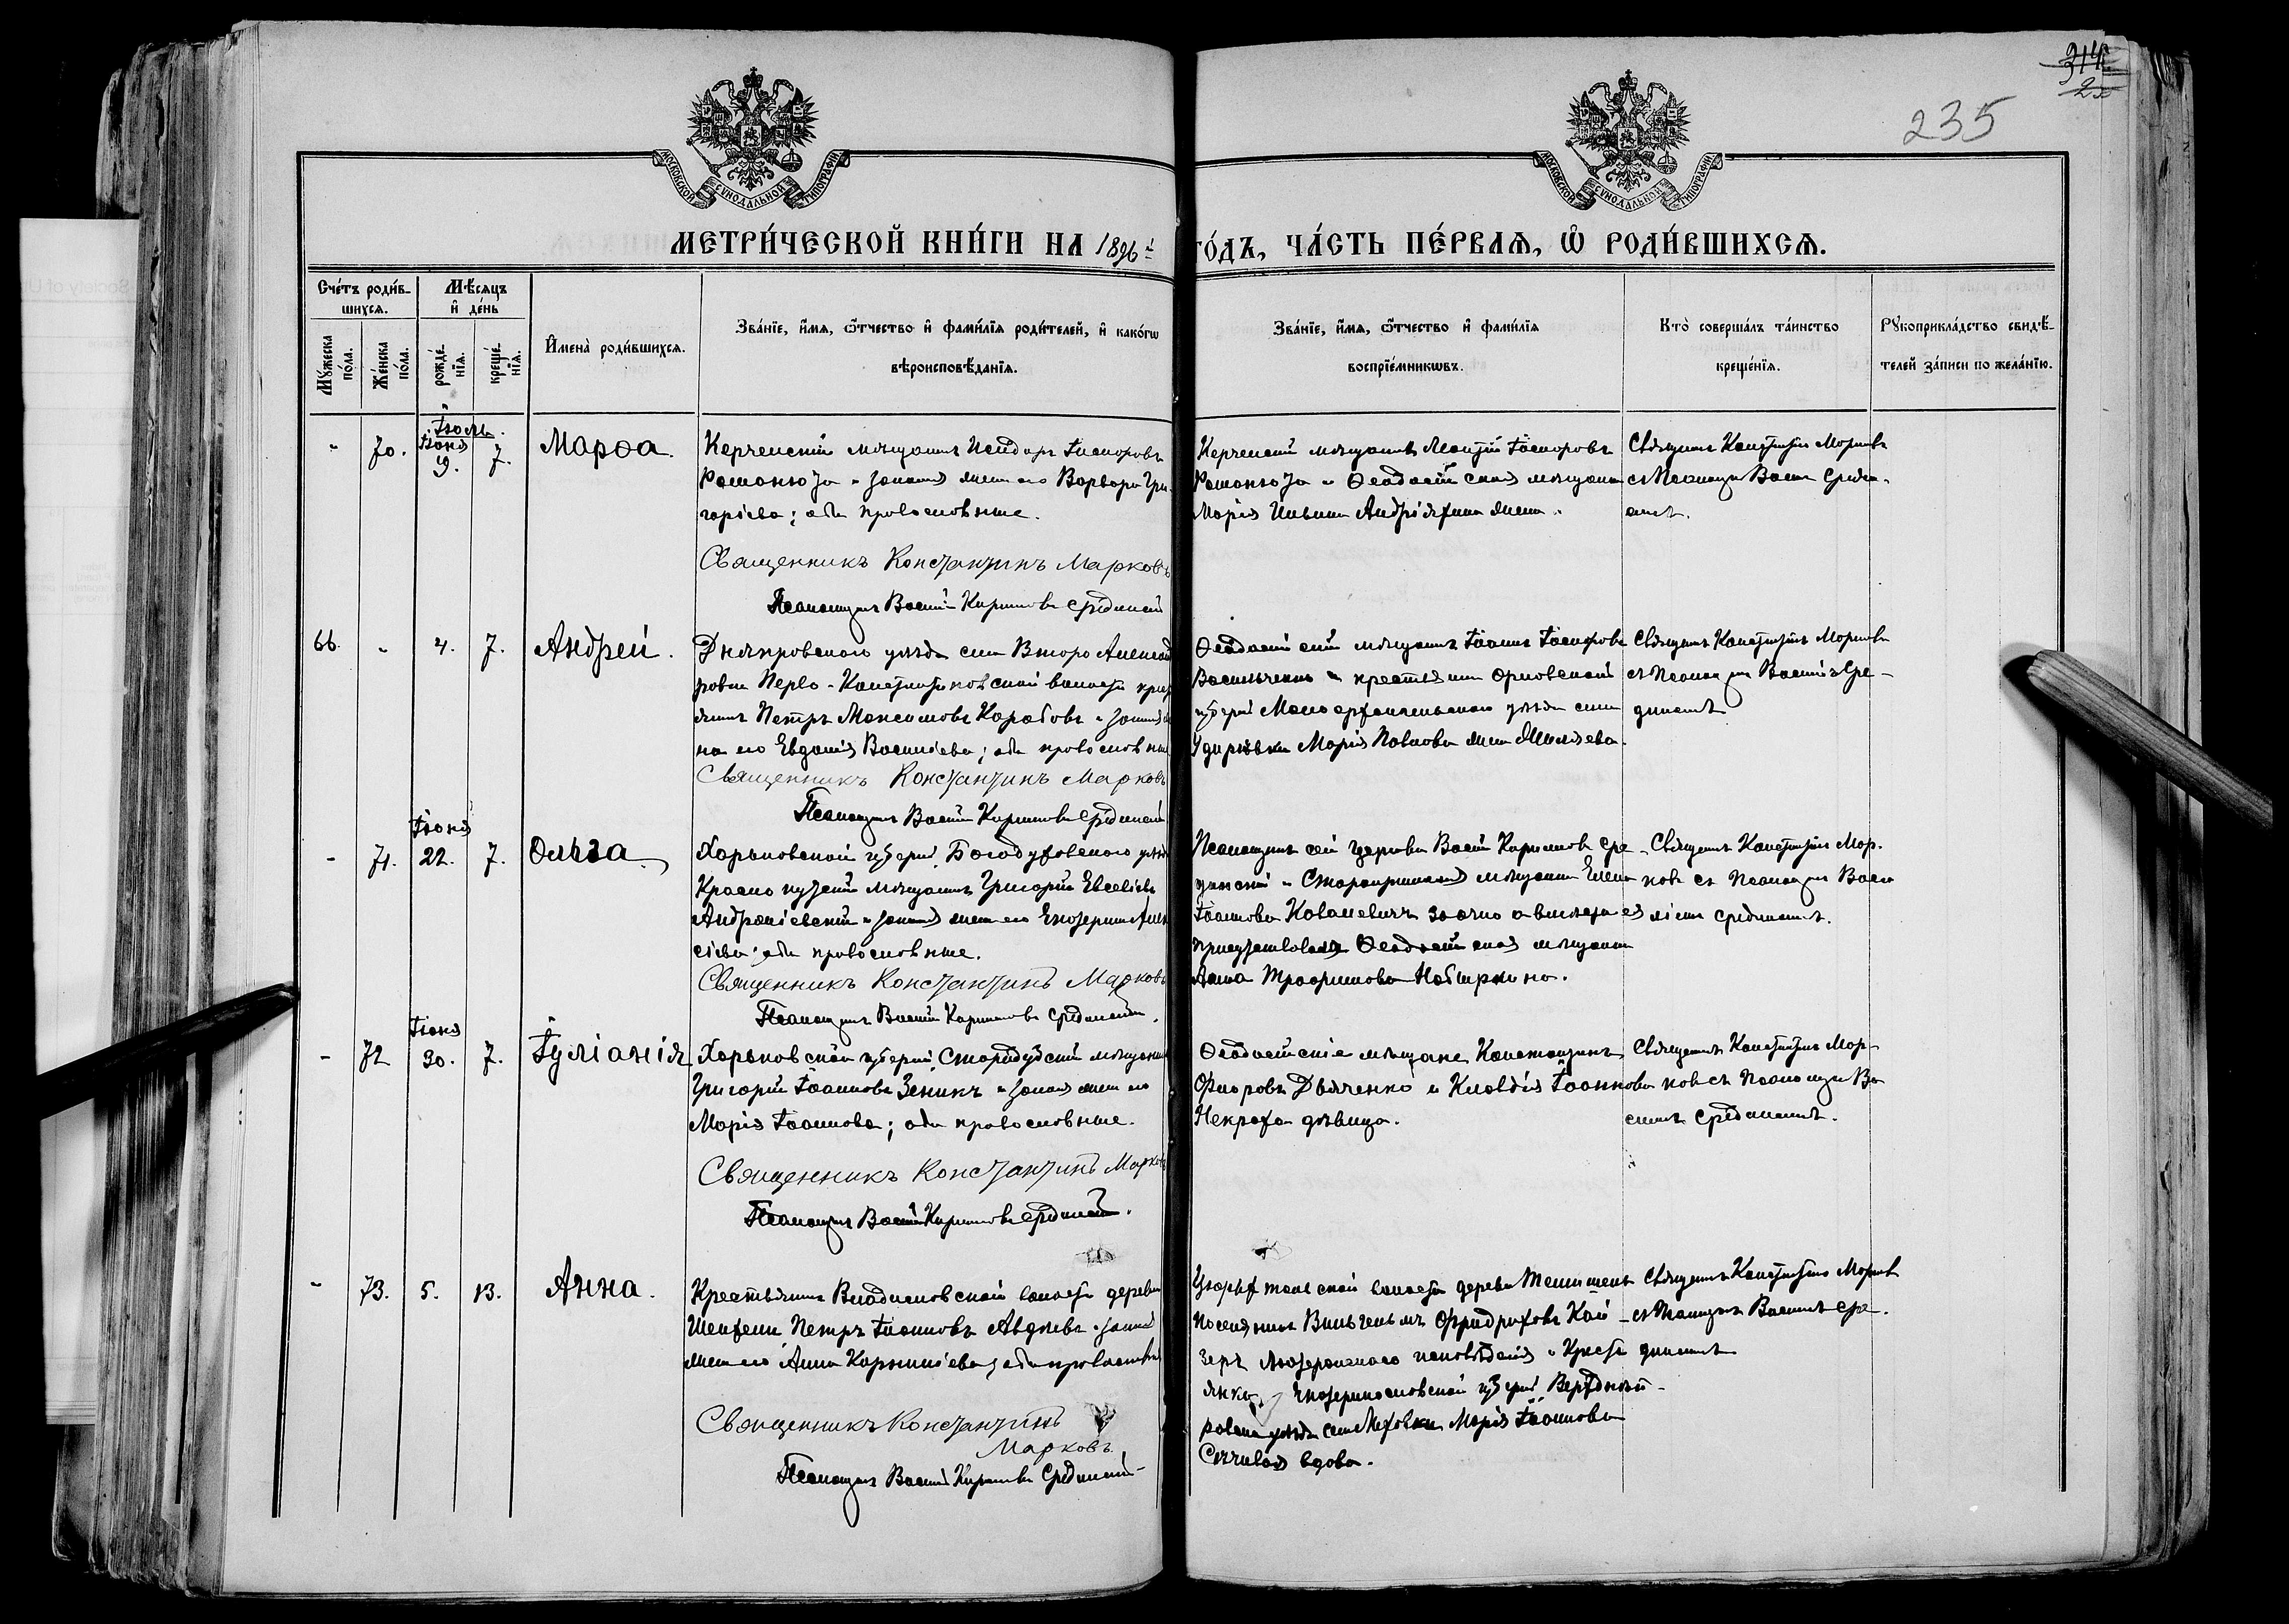 235
МОСКОВСКОЙ СѴНОДАЛЬНОЙ ТИПОГРАФІИ
МОСКОВСКОЙ СѴНОДАЛЬНОЙ ТИПОГРАФІИ
МЕТРИ́ЧЕСКОЙ КНИ́ГИ НА 1896й ГО́ДЪ, ЧА́СТЬ ПЕ́РВАЯ, Ѡ РОДИ́ВШИХСЯ.
Сче́тъ роди́в-
шихся.
Му́жеска по́ла.
Же́нска по́ла.
Мѣ́сяцъ и де́нь
рожде́-
нія.
креще́-
нія.
Имена̀ роди́вшихся.
Зва́ніе, и́мя, ѻ́тчество и фами́лія роди́телей, и како́гѡ
вѣроисповѣ́данія.
Зва́ніе, и́мя, ѻ́тчество и фами́лія
воспріе́мникѡвъ.
Кто̀ соверша́лъ та́инство
креще́нія.
Рꙋкоприкла́дство свидѣ́-
телей за́писи по жела́нію.
Іюль.
" 70. Іюня 9. 7. Марѳа.
Керченскій мѣщанинъ Исидоръ
Романюта и законная жена его Варвара Гри-
горіева; оба православные.
Священникъ Константинъ Марковъ
Псаломщикъ Василій Кириллов Срединскій
Керченскій мѣщанинъ
Романюта и Ѳеодосійская мѣщанка
Марія жена.
Священникъ Константинъ Марковъ
съ Псаломщик. Васил. Средин-
скимъ.
66. " 4. 7. Андрей.
Днѣпровскаго уѣзда села Второ Александ
ровки Перво-Константиновской волости крест
янинъ Петръ Максимовъ Коробовъ и законная же
на его Евдокія Васильева; оба православные
Священникъ Константинъ Марковъ
Псаломщикъ Василій Кириллов Срединскій
Ѳеодосійскій мѣщанинъ Іоаннъ
Васильченко и крестьянка Орловской
губерніи Малоархангельскаго уѣзда села
Марія Павлова
Священникъ Константинъ Марковъ
съ Псаломщикомъ Василіемъ Сре-
динскимъ
" 71. Іюня 22. 7. Ольга
Харьковской губерніи, Богодуховскаго уѣзда
Краснокутскій мѣщанинъ Григорій Евсевіевъ
Андросіевскій и законная жена его Екатерина Алек
сіева; оба православные.
Священникъ Константинъ Марковъ
Псаломщикъ Василій Кириллов Срединскій.
Псаломщикъ сей церкви Василій Кириллов Сре-
динскій и мѣщанка Елена
Іоаннова заочно а вмѣсто ея
присутствовала Ѳеодосійская мѣщанка
Анна Трофимова
Священникъ Константинъ Мар-
ковъ съ Псаломщик. Васи
ліемъ Срединскимъ.
" 72 Іюня 30. 7. Іуліанія
Харьковской губерніи, мѣщанинъ
Григорій Іоанновъ Зеникъ и законная жена его
Марія Іоаннова; оба православные.
Священникъ Константинъ Марковъ
Псаломщикъ Василій Кириллов Срединскій.
Ѳеодосійскіе мѣщане Константинъ
Флоровъ Дьяченко и Клавдія Іоаннова
дѣвица.
Священникъ Константинъ Мар-
ковъ съ Псаломщик. Ва
силіемъ Срединскимъ.
" 73. 5. 13. Анна.
Крестьянинъ Владиславовской волости деревни
Петръ Іоанновъ Авдѣевъ и законная
жена его Анна Корниліева; оба православные
Священникъ Константинъ
Марковъ.
Псаломщикъ Василій Кириллов Срединскій
Цюрихтальской волости деревни
поселянинъ Вильгельмъ Фридриховъ Кай-
зеръ Лютеранскаго исповѣданія и Крест
янка Екатеринославской губерніи, Бердян-
скаго уѣзда села Марія Іоаннова
вдова.
Священникъ Константинъ Марковъ
съ Псаломщикомъ Василіемъ Сре-
динскимъ